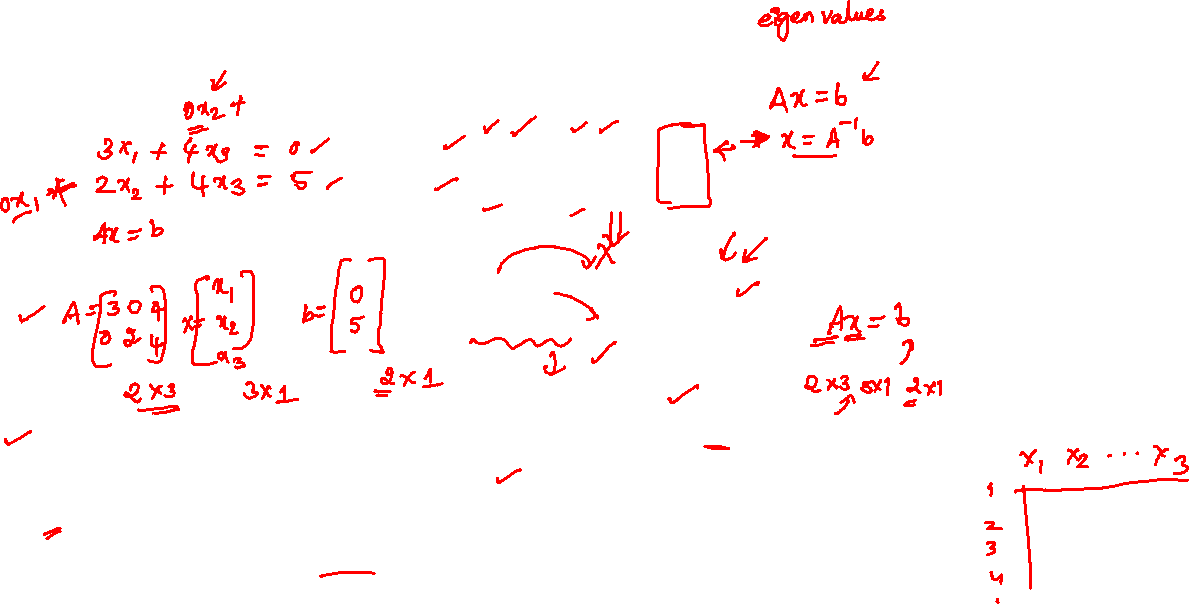 eigen values
Ax = b
x = A⁻¹ b
0x₂ +
3x₁ + 4x₃ = 0
0x₁ + 2x₂ + 4x₃ = 5
Ax = b
A = [3 0 4
0 2 4]
x = [x₁
x₂
x₃]
b = [0
5]
2×3 3×1 2×1
Ax = b
2×3 3×1 2×1
x₁ x₂ ... x₃
1
2
3
4